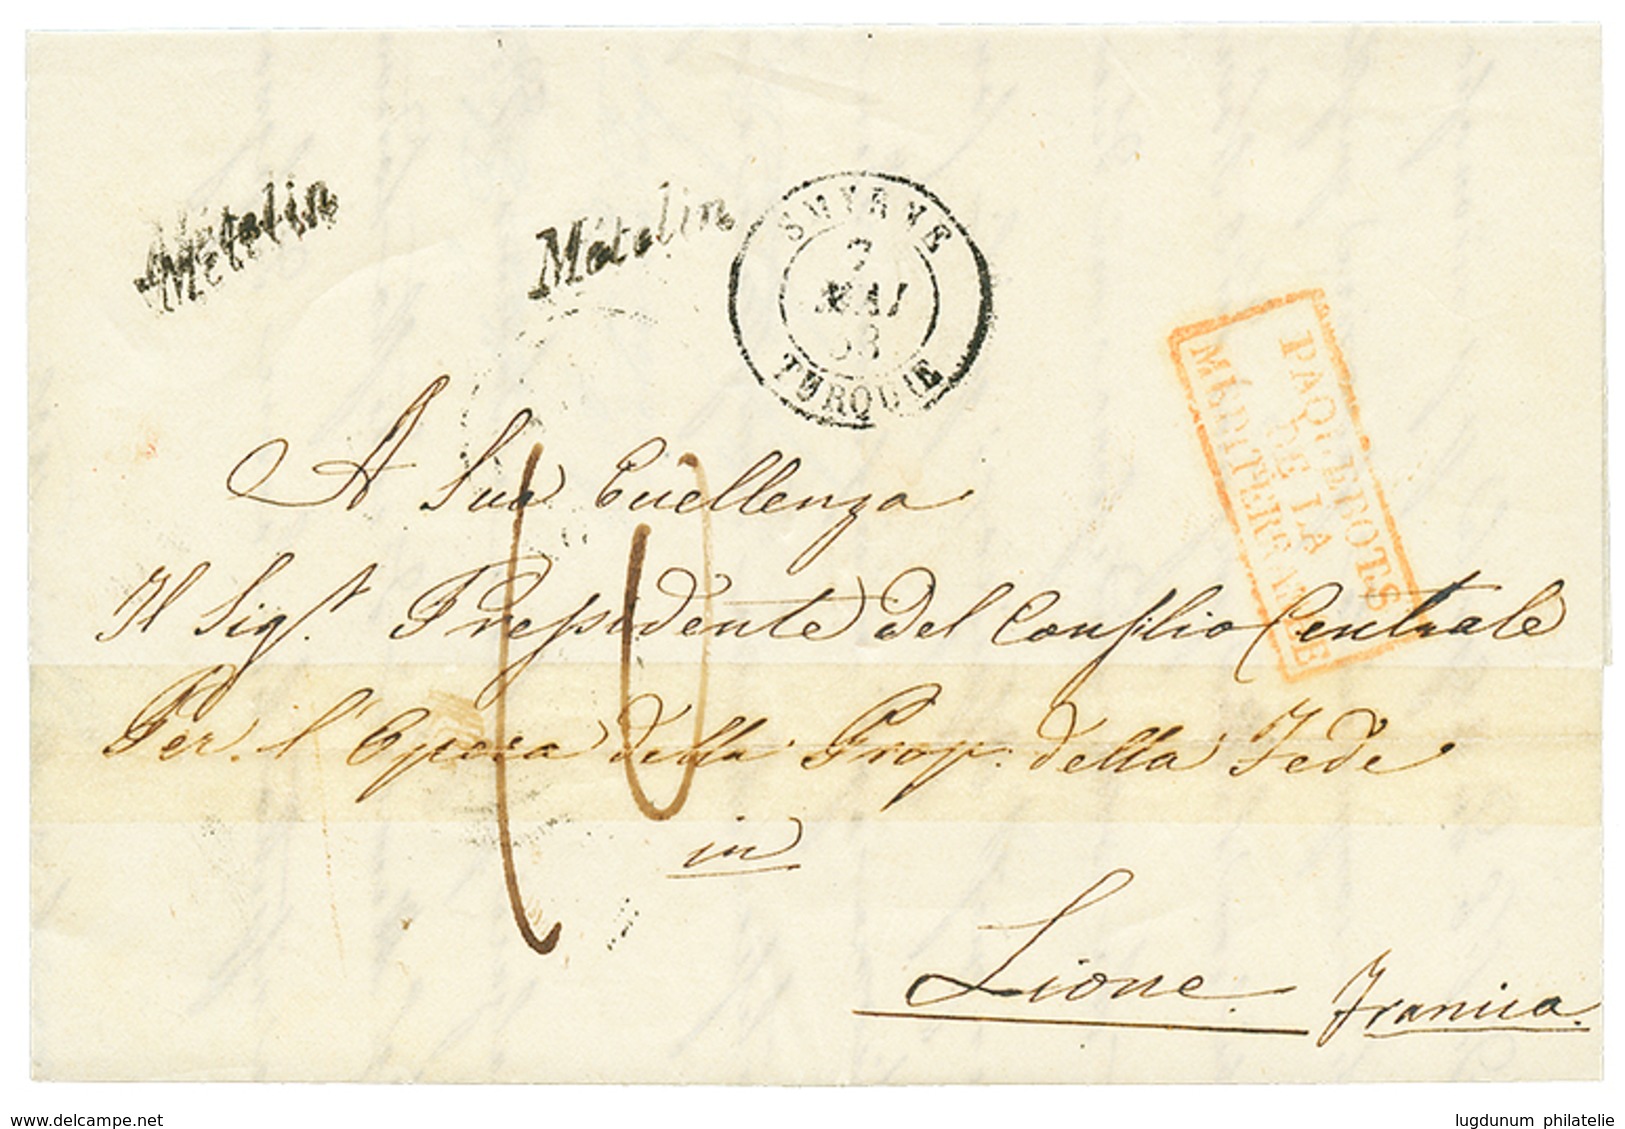 Métélin
Métélin
SMYRNE
7
MAI
53
TURQUIE
PAQUEBOTS
DE LA
MÉDITERRANÉE
10
A Sua Eccellenza
Il Sigr. Presidente del Consilio Centrale
Per l'Opera della Prop. della Fede
in
Lione Francia.
delcampe.net
lugdunum philatelie